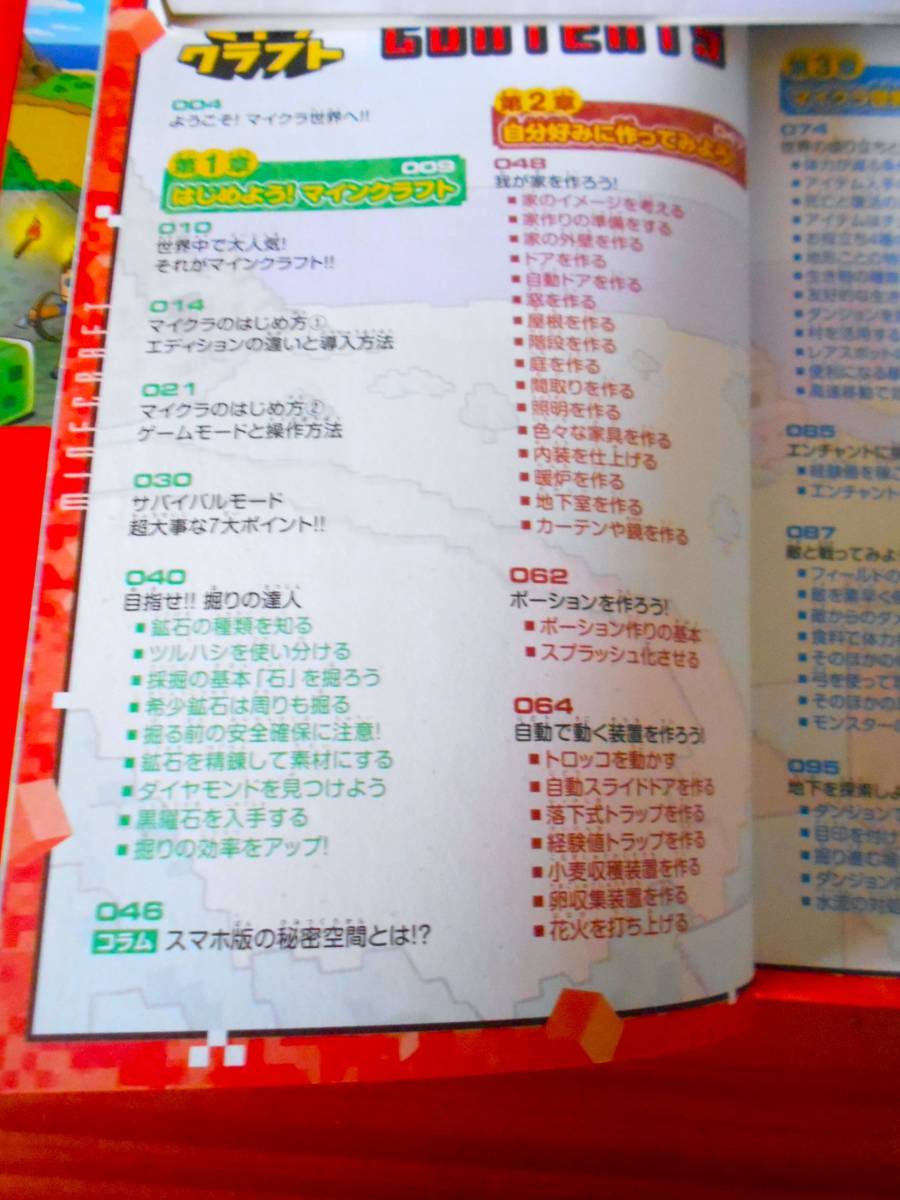 クラフト
CONTENTS
004
ようこそ! マイクラ世界へ!!
第1章
009
はじめよう! マインクラフト
010
世界中で大人気!
それがマインクラフト!!
014
マイクラのはじめ方①
エディションの違いと導入方法
021
マイクラのはじめ方②
ゲームモードと操作方法
030
サバイバルモード
超大事な7大ポイント!!
040
目指せ!! 掘りの達人
■鉱石の種類を知る
■ツルハシを使い分ける
■採掘の基本「石」を掘ろう
■希少鉱石は周りも掘る
■掘る前の安全確保に注意!
■鉱石を精錬して素材にする
■ダイヤモンドを見つけよう
■黒曜石を入手する
■掘りの効率をアップ!
046
コラム スマホ版の秘密空間とは!?
第2章
自分好みに作ってみよう
048
我が家を作ろう!
■家のイメージを考える
■家作りの準備をする
■家の外壁を作る
■ドアを作る
■自動ドアを作る
■窓を作る
■屋根を作る
■階段を作る
■庭を作る
■間取りを作る
■照明を作る
■色々な家具を作る
■内装を仕上げる
■暖炉を作る
■地下室を作る
■カーテンや鏡を作る
062
ポーションを作ろう!
■ポーション作りの基本
■スプラッシュ化させる
064
自動で動く装置を作ろう!
■トロッコを動かす
■自動スライドドアを作る
■落下式トラップを作る
■経験値トラップを作る
■小麦収穫装置を作る
■卵収集装置を作る
■花火を打ち上げる
第3章
074
世界の成り立ちと
■体力が減る条
■アイテム入手
■死亡と復活の
■アイテムはチ
■お役立ち4種
■地形ごとの特
■生き物の種類
■友好的な生き
■ダンジョンを
■村を活用する
■レアスポット
■便利になる
■高速移動で
085
エンチャントに
■経験値を稼
■エンチャント
087
敵と戦ってみよう
■フィールドの
■敵を素早く
■敵からのダメ
■食料で体力
■そのほかの
■弓を使って
■そのほかの
■モンスターの
095
地下を探索しよ
■ダンジョンで
■目印を付け
■掘り進む場
■ダンジョン
■水流の対処